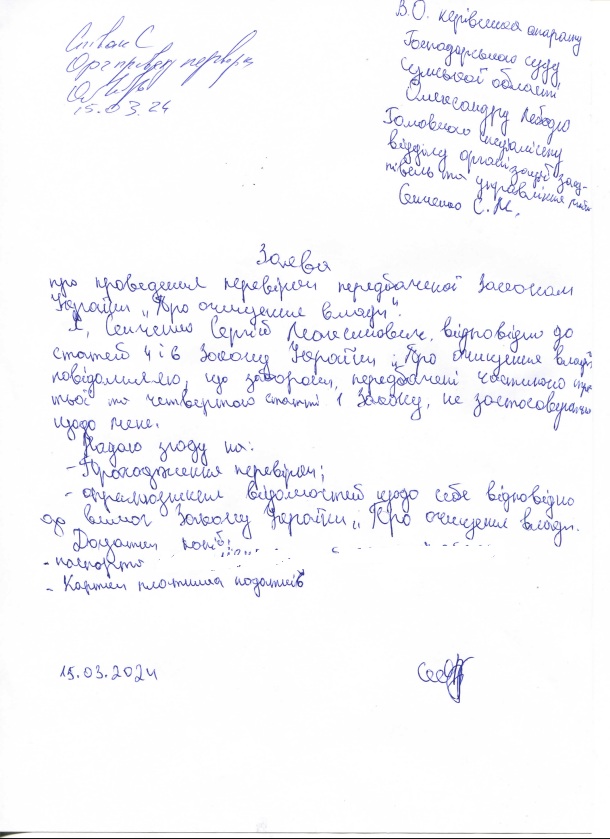 Співак С
Орг провед перевірки
15.03.24
В.О. керівника апарату
Господарського суду
Сумської області
Олександру Лебедю
Головного спеціалісту
відділу організації заку-
півель та управління
Сенченко С.М.
Заява
про проведення перевірки передбаченої Законом
України „Про очищення влади".
Я, Сенченко Сергій Максимович, відповідно до
статей 4 і 6 Закону України „Про очищення влади
повідомляю, що заборони, передбачені частиною тре
тьої та четвертою статті 1 Закону, не застосовуються
щодо мене.
Надаю згоду на:
- Проходження перевірки;
- оприлюднення відомостей щодо себе відповідно
до вимог Закону України „Про очищення влади.
Додатки копії:
- паспорта
- Картки платника податків
15.03.2024